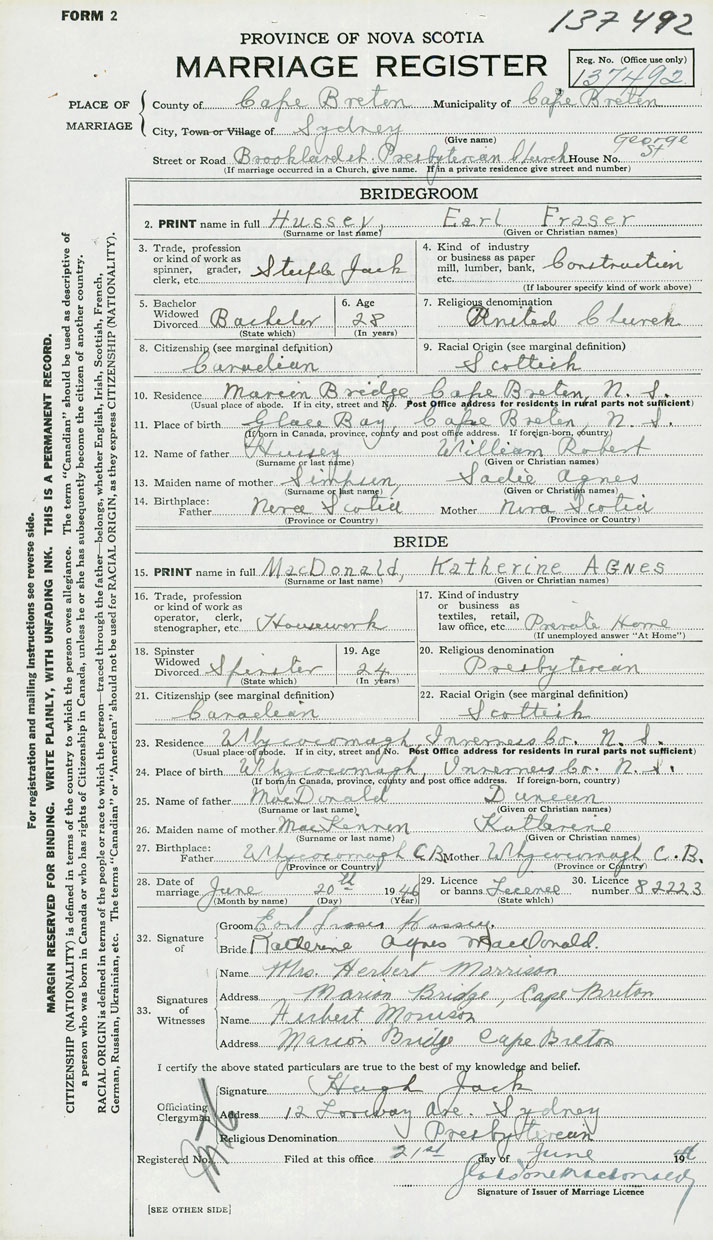 FORM 2
137492
PROVINCE OF NOVA SCOTIA
MARRIAGE REGISTER
Reg. No. (Office use only)
137492
PLACE OF MARRIAGE
County of Cape Breton Municipality of Cape Breton
City, Town or Village of Sydney
(Give name)
George St
Street or Road Brookland St. Presbyterian Church House No.
(If marriage occurred in a Church, give name. If in a private residence give street and number)
BRIDEGROOM
2. PRINT name in full Hussey, Earl Fraser
(Surname or last name) (Given or Christian names)
3. Trade, profession or kind of work as spinner, grader, clerk, etc. Steeple Jack
4. Kind of industry or business as paper mill, lumber, bank, etc. Construction
(If labourer specify kind of work above)
5. Bachelor Widowed Divorced Bachelor
(State which)
6. Age 28
(In years)
7. Religious denomination United Church
8. Citizenship (see marginal definition) Canadian
9. Racial Origin (see marginal definition) Scottish
10. Residence Marion Bridge Cape Breton, N. S.
(Usual place of abode. If in city, street and No. Post Office address for residents in rural parts not sufficient)
11. Place of birth Glace Bay, Cape Breton, N. S.
(If born in Canada, province, county and post office address. If foreign-born, country)
12. Name of father Hussey William Robert
(Surname or last name) (Given or Christian names)
13. Maiden name of mother Simpson, Sadie Agnes
(Surname or last name) (Given or Christian names)
14. Birthplace: Father Nova Scotia Mother Nova Scotia
(Province or Country) (Province or Country)
BRIDE
15. PRINT name in full MacDonald, Katherine Agnes
(Surname or last name) (Given or Christian names)
16. Trade, profession or kind of work as operator, clerk, stenographer, etc. Housework
17. Kind of industry or business as textiles, retail, law office, etc. Private Home
(If unemployed answer "At Home")
18. Spinster Widowed Divorced Spinster
(State which)
19. Age 24
(In years)
20. Religious denomination Presbyterian
21. Citizenship (see marginal definition) Canadian
22. Racial Origin (see marginal definition) Scottish
23. Residence Whycocomagh, Inverness Co. N. S.
(Usual place of abode. If in city, street and No. Post Office address for residents in rural parts not sufficient)
24. Place of birth Whycocomagh, Inverness Co. N. S.
(If born in Canada, province, county and post office address. If foreign-born, country)
25. Name of father MacDonald Duncan
(Surname or last name) (Given or Christian names)
26. Maiden name of mother MacKennon Katherine
(Surname or last name) (Given or Christian names)
27. Birthplace: Father Whycocomagh C.B. Mother Whycocomagh C.B.
(Province or Country) (Province or Country)
28. Date of marriage June 20th 1946
(Month by name) (Day) (Year)
29. Licence or banns Licence
(State which)
30. Licence number 82223
32. Signature of
Groom Earl Fraser Hussey.
Bride Katherine Agnes MacDonald.
33. Signatures of Witnesses
Name Mrs. Herbert Morrison
Address Marion Bridge, Cape Breton
Name Herbert Morrison
Address Marion Bridge Cape Breton
I certify the above stated particulars are true to the best of my knowledge and belief.
Officiating Clergyman
Signature Hugh Jack
Address 12 Lorway Ave. Sydney
Religious Denomination Presbyterian
Registered No. Filed at this office 21st day of June 1946
Signature of Issuer of Marriage Licence
[SEE OTHER SIDE]
For registration and mailing instructions see reverse side.
MARGIN RESERVED FOR BINDING. WRITE PLAINLY, WITH UNFADING INK. THIS IS A PERMANENT RECORD.
CITIZENSHIP (NATIONALITY) is defined in terms of the country to which the person owes allegiance. The term "Canadian" should be used as descriptive of
a person who was born in Canada or who has rights of Citizenship in Canada, unless he or she has subsequently become the citizen of another country.
RACIAL ORIGIN is defined in terms of the people or race to which the person—traced through the father—belongs, whether English, Irish, Scottish, French,
German, Russian, Ukrainian, etc. The terms "Canadian" or "American" should not be used for RACIAL ORIGIN, as they express CITIZENSHIP (NATIONALITY).